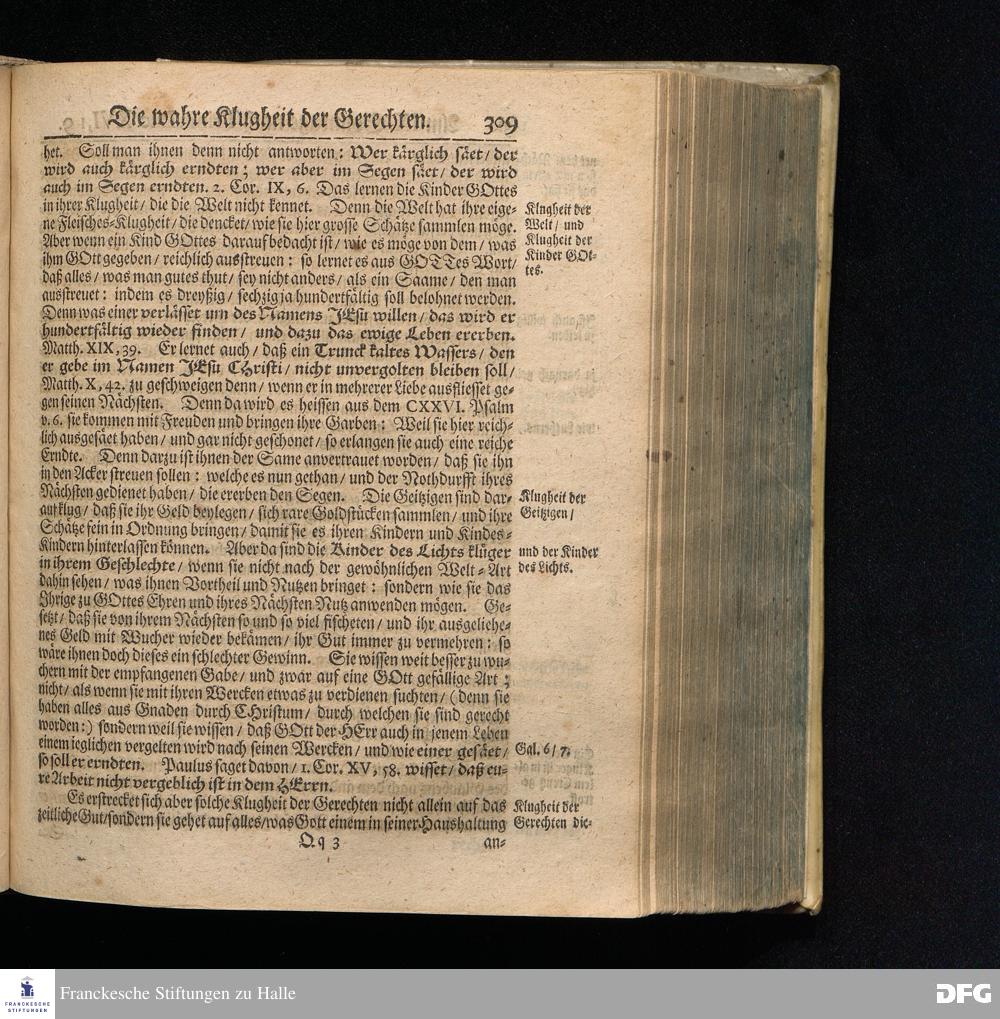 Die wahre Klugheit der Gerechten. 309
het. Soll man ihnen denn nicht antworten: Wer kärglich säet/ der
wird auch kärglich erndten; wer aber im Segen säet/ der wird
auch im Segen erndten. 2. Cor. IX, 6. Das lernen die Kinder GOttes
in ihrer Klugheit/ die die Welt nicht kennet. Denn die Welt hat ihre eige-
ne Fleisches-Klugheit/ die dencket/ wie sie hier grosse Schätze sammlen möge.
Aber wenn ein Kind GOttes darauf bedacht ist/ wie es möge von dem/ was
ihm GOtt gegeben/ reichlich ausstreuen: so lernet es aus GOTTes Wort/
daß alles/ was man gutes thut/ sey nicht anders/ als ein Saame/ den man
ausstreuet: indem es dreyßig/ sechzig ja hundertfältig soll belohnet werden.
Denn was einer verlässet um des Namens JEsu willen/ das wird er
hundertfältig wieder finden/ und dazu das ewige Leben ererben.
Matth. XIX, 39. Er lernet auch/ daß ein Trunck kaltes Wassers/ den
er gebe im Namen JEsu CHristi/ nicht unvergolten bleiben soll/
Matth. X, 42. zu geschweigen denn/ wenn er in mehrerer Liebe ausfliesset ge-
gen seinen Nächsten. Denn da wird es heissen aus dem CXXVI. Psalm
v. 6. sie kommen mit Freuden und bringen ihre Garben: Weil sie hier reich-
lich ausgesäet haben/ und gar nicht geschonet/ so erlangen sie auch eine reiche
Erndte. Denn darzu ist ihnen der Same anvertrauet worden/ daß sie ihn
in den Acker streuen sollen: welche es nun gethan/ und der Nothdurfft ihres
Nächsten gedienet haben/ die ererben den Segen. Die Geitzigen sind dar-
auf klug/ daß sie ihr Geld beylegen/ sich rare Goldstücken sammlen/ und ihre
Schätze fein in Ordnung bringen/ damit sie es ihren Kindern und Kindes-
Kindern hinterlassen können. Aber da sind die Kinder des Lichts klüger
in ihrem Geschlechte/ wenn sie nicht nach der gewöhnlichen Welt-Art
dahin sehen/ was ihnen Vortheil und Nutzen bringet: sondern wie sie das
Ihrige zu GOttes Ehren und ihres Nächsten Nutz anwenden mögen. Ge-
setzt/ daß sie von ihrem Nächsten so und so viel fischeten/ und ihr ausgeliehe-
nes Geld mit Wucher wieder bekämen/ ihr Gut immer zu vermehren: so
wäre ihnen doch dieses ein schlechter Gewinn. Sie wissen weit besser zu wu-
chern mit der empfangenen Gabe/ und zwar auf eine GOtt gefällige Art;
nicht/ als wenn sie mit ihren Wercken etwas zu verdienen suchten/ (denn sie
haben alles aus Gnaden durch CHristum/ durch welchen sie sind gerecht
worden:) sondern weil sie wissen/ daß GOtt der HErr auch in jenem Leben
einem ieglichen vergelten wird nach seinen Wercken/ und wie einer gesäet/
so soll er erndten. Paulus saget davon/ 1. Cor. XV, 58. wisset/ daß eu-
re Arbeit nicht vergeblich ist in dem HErrn.
Es erstrecket sich aber solche Klugheit der Gerechten nicht allein auf das
zeitliche Gut/ sondern sie gehet auf alles/ was Gott einem in seiner Haushaltung
Qq 3 an-
Klugheit der
Welt/ und
Klugheit der
Kinder GOt-
tes.
Klugheit der
Geitzigen/
und der Kinder
des Lichts.
Gal. 6/ 7.
Klugheit der
Gerechten die-
FRANCKESCHE
STIFTUNGEN
Franckesche Stiftungen zu Halle
DFG